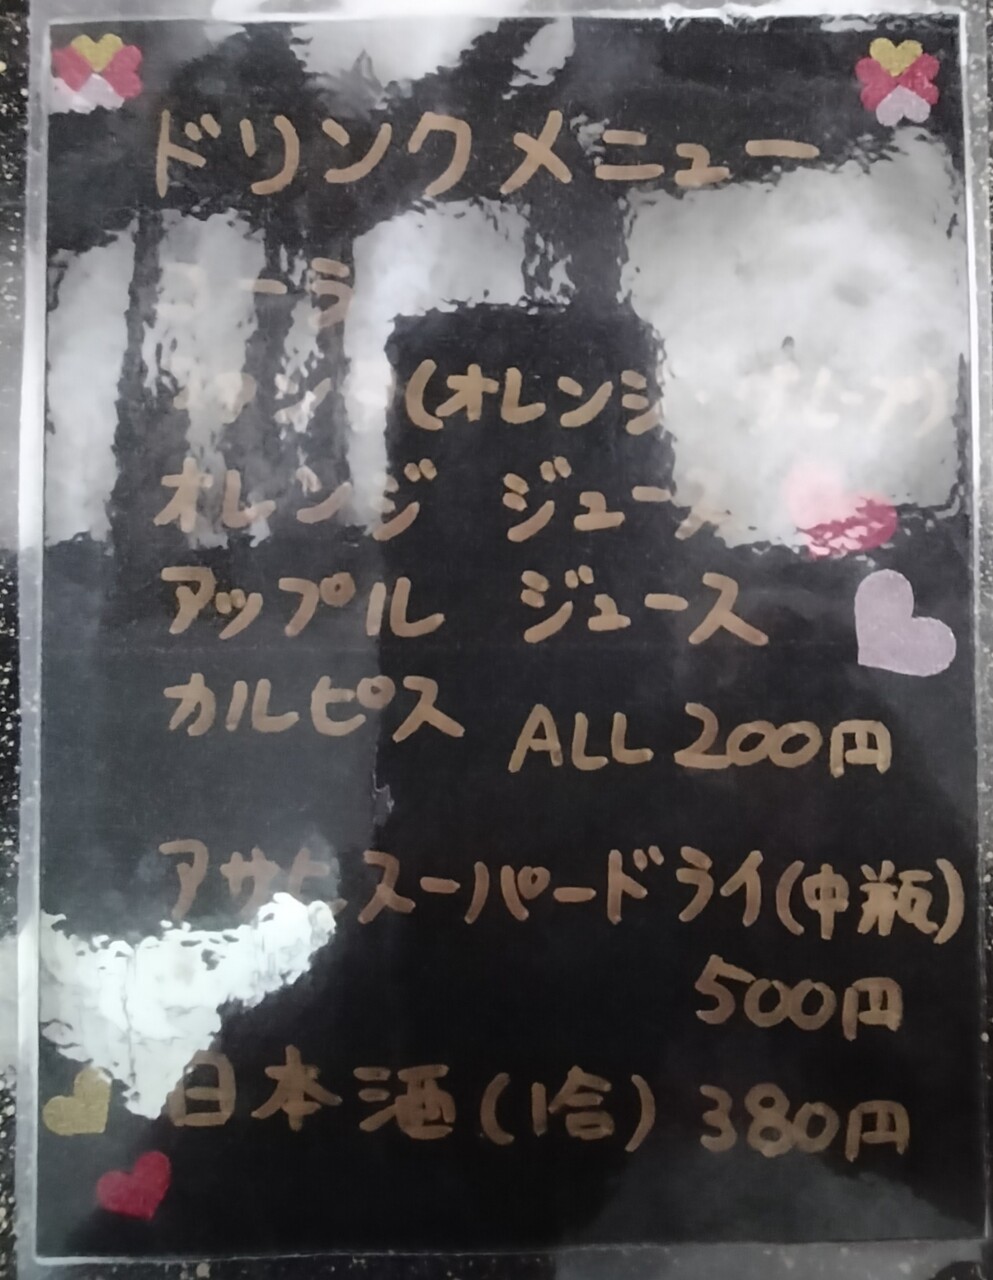 ドリンクメニュー
コーラ
ファンタ (オレンジ・グレープ)
オレンジ ジュース
アップル ジュース
カルピス ALL 200円
アサヒスーパードライ(中瓶)
500円
日本酒(1合) 380円